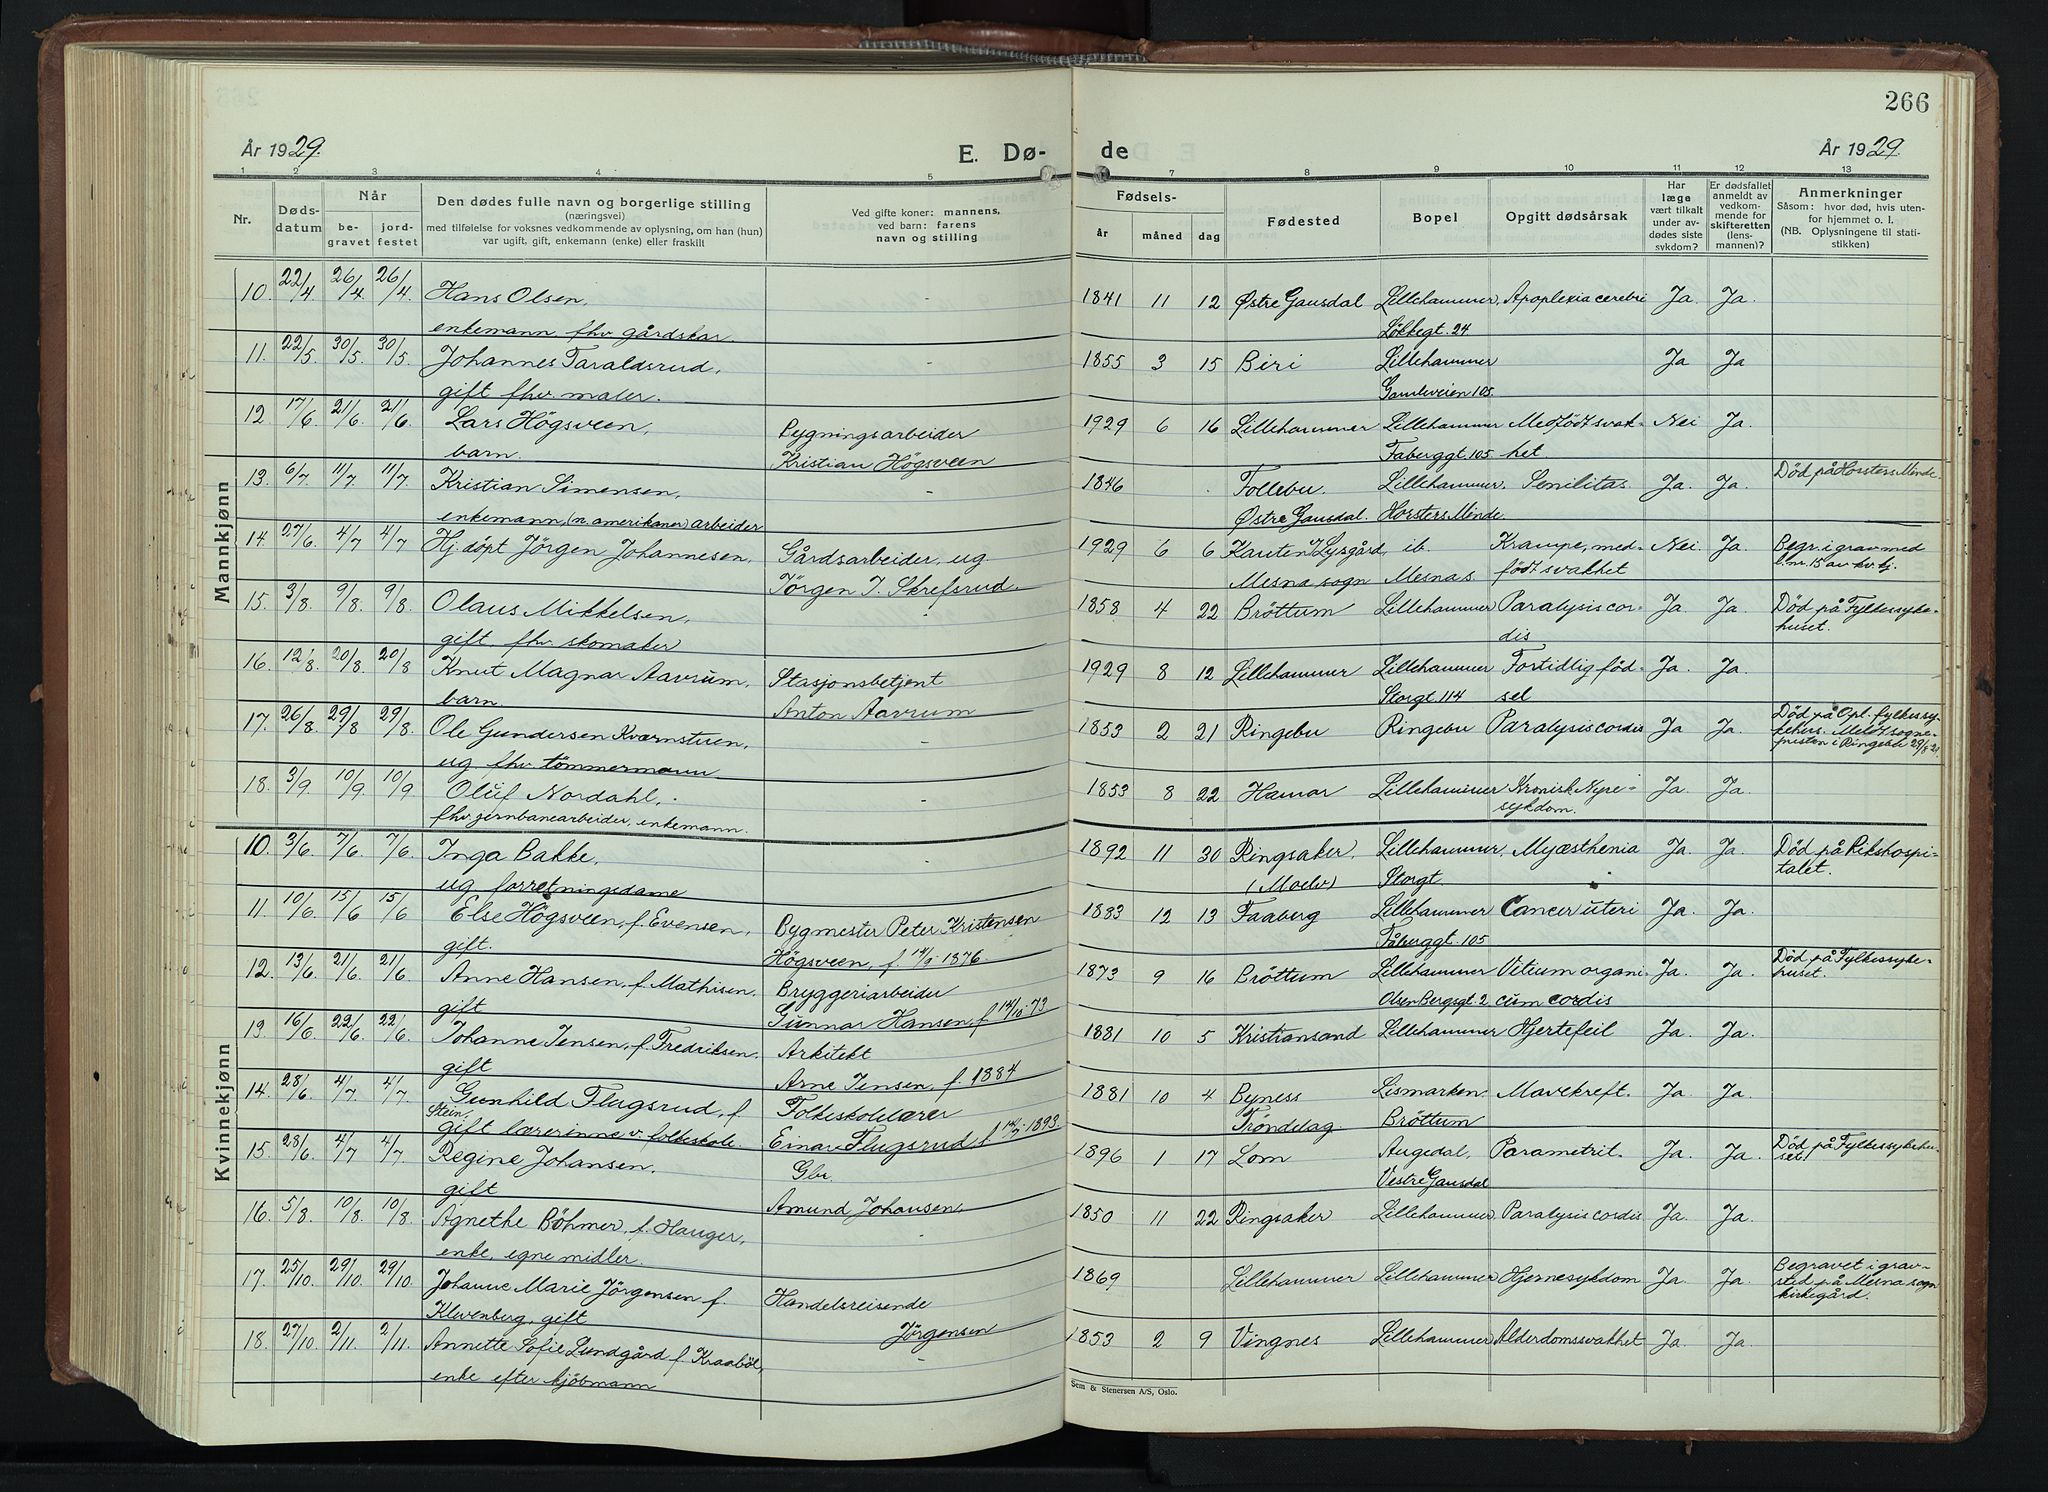 266
År 1929.
E. Dø-
de
År 1929.
1 2 3 4 5 7 8 9 10 11 12 13
Nr.
Døds-
datum
Når
be-
gravet
jord-
festet
Den dødes fulle navn og borgerlige stilling
(næringsvei)
med tilføielse for voksnes vedkommende av oplysning, om han (hun)
var ugift, gift, enkemann (enke) eller fraskilt
Ved gifte koner: mannens,
ved barn: farens
navn og stilling
Fødsels-
år måned dag
Fødested
Bopel
Opgitt dødsårsak
Har
læge
vært tilkalt
under av-
dødes siste
sykdom?
Er dødsfallet
anmeldt av
vedkom-
mende for
skifteretten
(lens-
mannen)?
Anmerkninger
Såsom: hvor død, hvis uten-
for hjemmet o. l.
(NB. Oplysningene til stati-
stikken)
Mannkjønn
10. 22/4 26/4 26/4. Hans Olsen, - 1841 11 12 Østre Gausdal Lillehammer, Apoplexia cerebri Ja Ja.
enkemann, fhv. gårdskar. Løkkegt. 24
11. 22/5 30/5. 30/5. Johannes Taraldsrud, - 1855 3 15 Biri Lillehammer Ja Ja
gift fhv. maler. Gamleveien 105.
12. 17/6 21/6. 21/6 Lars Högsveen, Bygningsarbeider 1929 6 16 Lillehammer Lillehammer Medfödt svak- Nei Ja.
barn. Kristian Högsveen Faberggt. 105 het
13. 6/7. 11/7. 11/7 Kristian Simensen, - 1846 . Follebu. Lillehammer, Senilitas Ja. Ja. Död på Horsters Minde.
enkemann, (n. amerikaner) arbeider Østre Gausdal. Horsters Minde.
14. 27/6. 4/7 4/7 Hj. döpt Jörgen Johannesen, Gårdsarbeider, ug 1929 6 6 Lysgård, ib. Krampe, med- Nei. Ja. Begr. i grav med
Jörgen J. Skrefsrud. Mesna sogn Mesna s. födt svakhet l.nr. 15 av kv.kj.
15. 3/8. 9/8. 9/8. Olaus Mikkelsen, 1858 4 22 Bröttum Lillehammer Paralysis cor- Ja Ja. Död på Fylkessyke-
gift, fhv. skomaker dis huset.
16. 12/8. 20/8. 20/8 Knut Magnar Aavrum, Stasjonsbetjent 1929 8 12 Lillehammer Lillehammer Fortidlig föd- Ja. Ja.
barn Anton Aavrum Storgt. 114 sel
17. 26/8 29/8 29/8. Ole Gundersen Kværnstuen, - 1853 2 21 Ringebu Ringebu Paralysis cordis Ja Ja. Död på Opl. fylkessy-
ug fhv. tömmermann kehus. Meldt sogne-
presten i Ringebu 29/8 29.
18. 3/9. 10/9. 10/9 Oluf Nordahl, - 1853 8 22 Hamar Lillehammer Kronisk Nyre- Ja. Ja.
fhv. jernbanearbeider, enkemann. sykdom.
Kvinnekjønn
10. 3/6. 7/6 7/6. Inga Bakke, - 1892 11 30 Ringsaker, Lillehammer, Myæsthenia Ja. Ja. Död på Rikshospi-
ug forretningsdame (Moelv) Storgt. talet.
11. 10/6. 15/6 15/6 Else Högsveen, f. Evensen, Bygmester Peter Kristensen 1883 12 13 Faaberg Lillehammer Cancer uteri Ja. Ja.
gift. Högsveen, f. 14/9 1876 Fåberggt. 105
12. 13/6. 21/6. 21/6. Anne Hansen, f. Mathisen, Bryggeriarbeider 1873 9 16 Bröttum Lillehammer Vitium organi- Ja. Ja. Död på Fylkessyke-
gift Gunnar Hansen f. 14/10 73 Olsen Bergsgt. 2 cum cordis huset.
13. 16/6 22/6. 22/6. Johanne Jensen, f. Fredriksen, Arkitekt 1881 10 5 Kristiansand Lillehammer Hjertefeil Ja. Ja.
gift Arne Jensen, f. 1884
14. 28/6 4/7. 4/7. Gunhild Flugsrud, f. Folkeskolelærer 1881 10 4 Byness Lismarken Mavekreft. Ja. Ja.
Stein, gift lærerinne v. folkeskole. Einar Flugsrud, f. 14/7 1893. Tröndelag Bröttum
15. 28/6 4/7. 4/7. Regine Johansen, Gbr. 1896 1 17 Lom Augedal, Parametrit. Ja. Ja. Död på Fylkessykehu-
gift Amund Johansen. Vestre Gausdal set.
16. 5/8. 10/8. 10/8. Agnethe Böhmer, f. Hauger, - 1850 11 22 Ringsaker Lillehammer Paralysis cordis Ja. Ja.
enke, egne midler.
17. 25/10 29/10. 29/10 Johanne Marie Jörgensen f. Handelsreisende 1869 Lillehammer Lillehammer Hjernesykdom Ja. Ja. Begravet i grav-
Klevenberg, gift Jörgensen sted på Mesna sogn
kirkegård.
18. 27/10. 2/11. 2/11. Annette Sofie Lundgård f. Kraaböl, - 1853 2 9 Vingnes Lillehammer Alderdomssvakhet Ja. Ja.
enke efter kjöbmann
Sem & Stenersen A/S, Oslo.